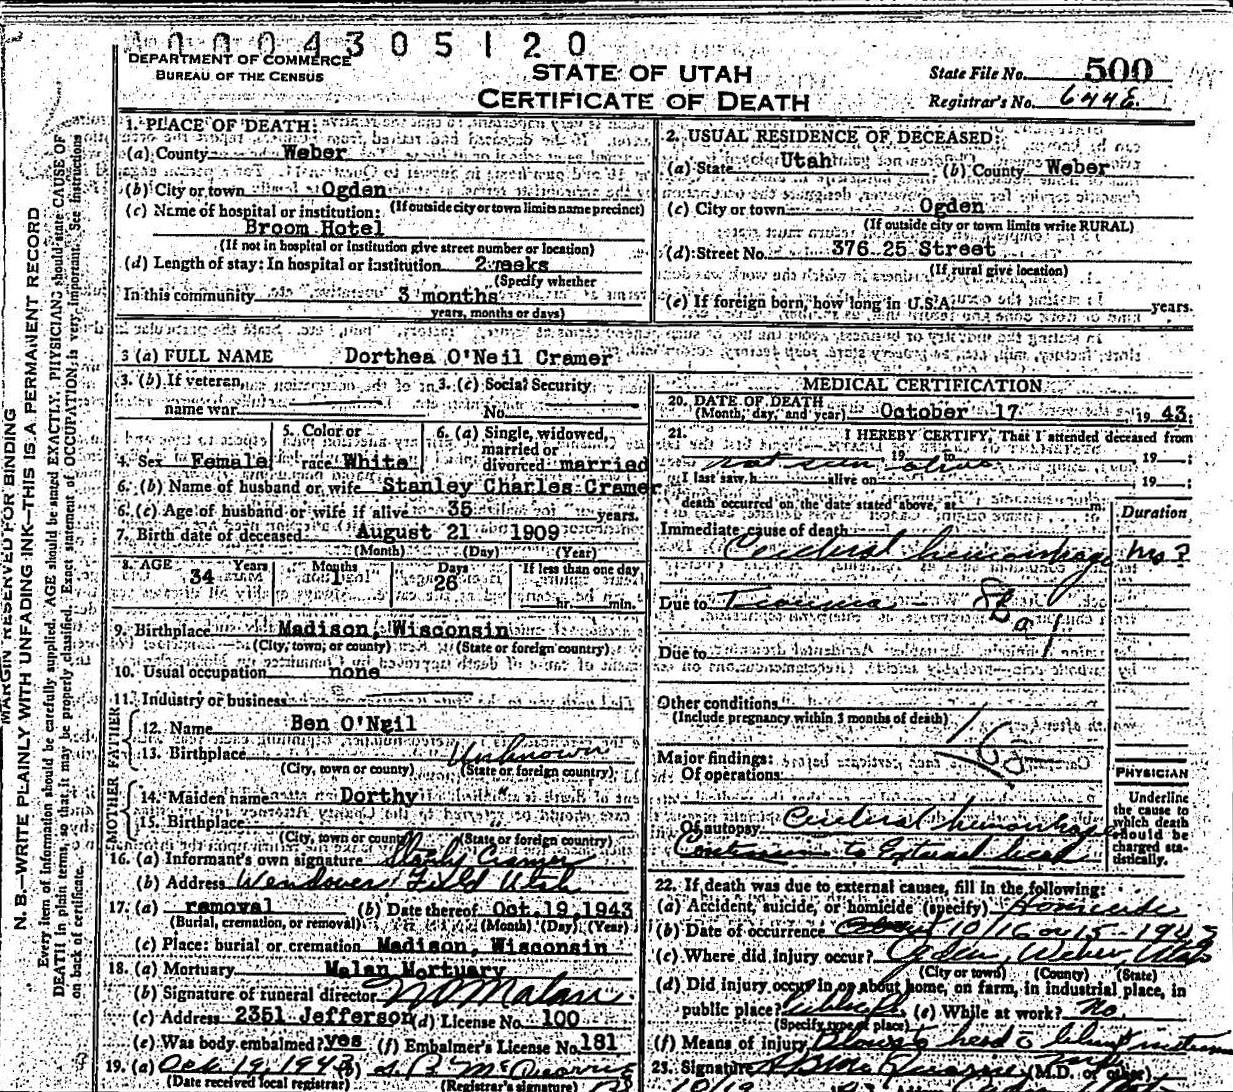 0004305120
DEPARTMENT OF COMMERCE
BUREAU OF THE CENSUS
STATE OF UTAH
CERTIFICATE OF DEATH
State File No. 500
Registrar's No.
MARGIN RESERVED FOR BINDING
N. B.—WRITE PLAINLY WITH UNFADING INK—THIS IS A PERMANENT RECORD
Every item of information should be carefully supplied. AGE should be stated EXACTLY. PHYSICIANS should state CAUSE OF
DEATH in plain terms, so that it may be properly classified. Exact statement of OCCUPATION is very important. See instructions
on back of certificate.
1. PLACE OF DEATH:
(a) County Weber
(b) City or town Ogden
(If outside city or town limits name precinct)
(c) Name of hospital or institution:
Broom Hotel
(If not in hospital or institution give street number or location)
(d) Length of stay: In hospital or institution 2 weeks
(Specify whether
In this community 3 months
years, months or days)
2. USUAL RESIDENCE OF DECEASED:
(a) State Utah (b) County Weber
(c) City or town Ogden
(If outside city or town limits write RURAL)
(d) Street No. 376 25 Street
(If rural give location)
(e) If foreign born, how long in U.S.A. years.
3 (a) FULL NAME Dorthea O'Neil Cramer
3. (b) If veteran, name war
3. (c) Social Security No.
4. Sex Female
5. Color or race White
6. (a) Single, widowed, married or divorced married
6. (b) Name of husband or wife Stanley Charles Cramer
6. (c) Age of husband or wife if alive 35 years.
7. Birth date of deceased August 21 1909
(Month) (Day) (Year)
8. AGE Years Months Days If less than one day
34 1 26 hr. min.
9. Birthplace Madison, Wisconsin
(City, town, or county) (State or foreign country)
10. Usual occupation none
11. Industry or business
FATHER
12. Name Ben O'Neil
13. Birthplace Unknown
(City, town or county) (State or foreign country)
MOTHER
14. Maiden name Dorthy "
15. Birthplace "
(City, town or county) (State or foreign country)
16. (a) Informant's own signature Stanly Cramer
(b) Address Wendover Field Utah
17. (a) removal (b) Date thereof Oct. 19, 1943
(Burial, cremation, or removal) (Month) (Day) (Year)
(c) Place: burial or cremation Madison, Wisconsin
18. (a) Mortuary Malan Mortuary
(b) Signature of funeral director Malan
(c) Address 2351 Jefferson (d) License No. 100
(e) Was body embalmed? yes (f) Embalmer's License No. 181
19. (a) Oct. 19, 1943 (b)
(Date received local registrar) (Registrar's signature)
MEDICAL CERTIFICATION
20. DATE OF DEATH
(Month, day, and year) October 17 19 43;
21. I HEREBY CERTIFY, That I attended deceased from
not seen alive 19 to 19 ;
I last saw h alive on 19 ;
death occurred on the date stated above, at m.
Duration
Immediate cause of death
Cerebral hemorrhage hrs?
Due to Trauma
Due to
Other conditions
(Include pregnancy within 3 months of death)
168
Major findings:
Of operations
Of autopsy Cerebral hemorrhage
to External head
PHYSICIAN
Underline the cause to which death should be charged statistically.
22. If death was due to external causes, fill in the following:
(a) Accident, suicide, or homicide (specify) Homicide
(b) Date of occurrence about 10/16 or 15 - 1943
(c) Where did injury occur? Ogden, Weber, Utah
(City or town) (County) (State)
(d) Did injury occur in or about home, on farm, in industrial place, in
public place? (e) While at work? No.
(Specify type of place)
(f) Means of injury Blows to head c̄ blunt
23. Signature (M.D. or other)
10/19